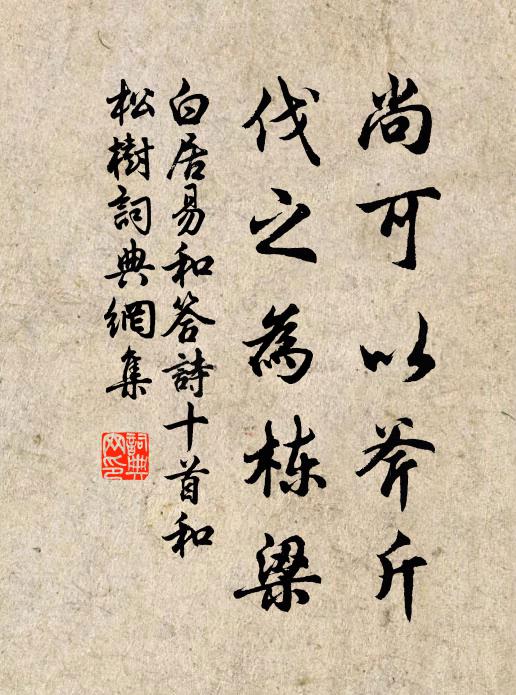 尚可以斧斤
伐之為栋梁
白居易和答詩十首和
松樹詞典網集
詞典
网印